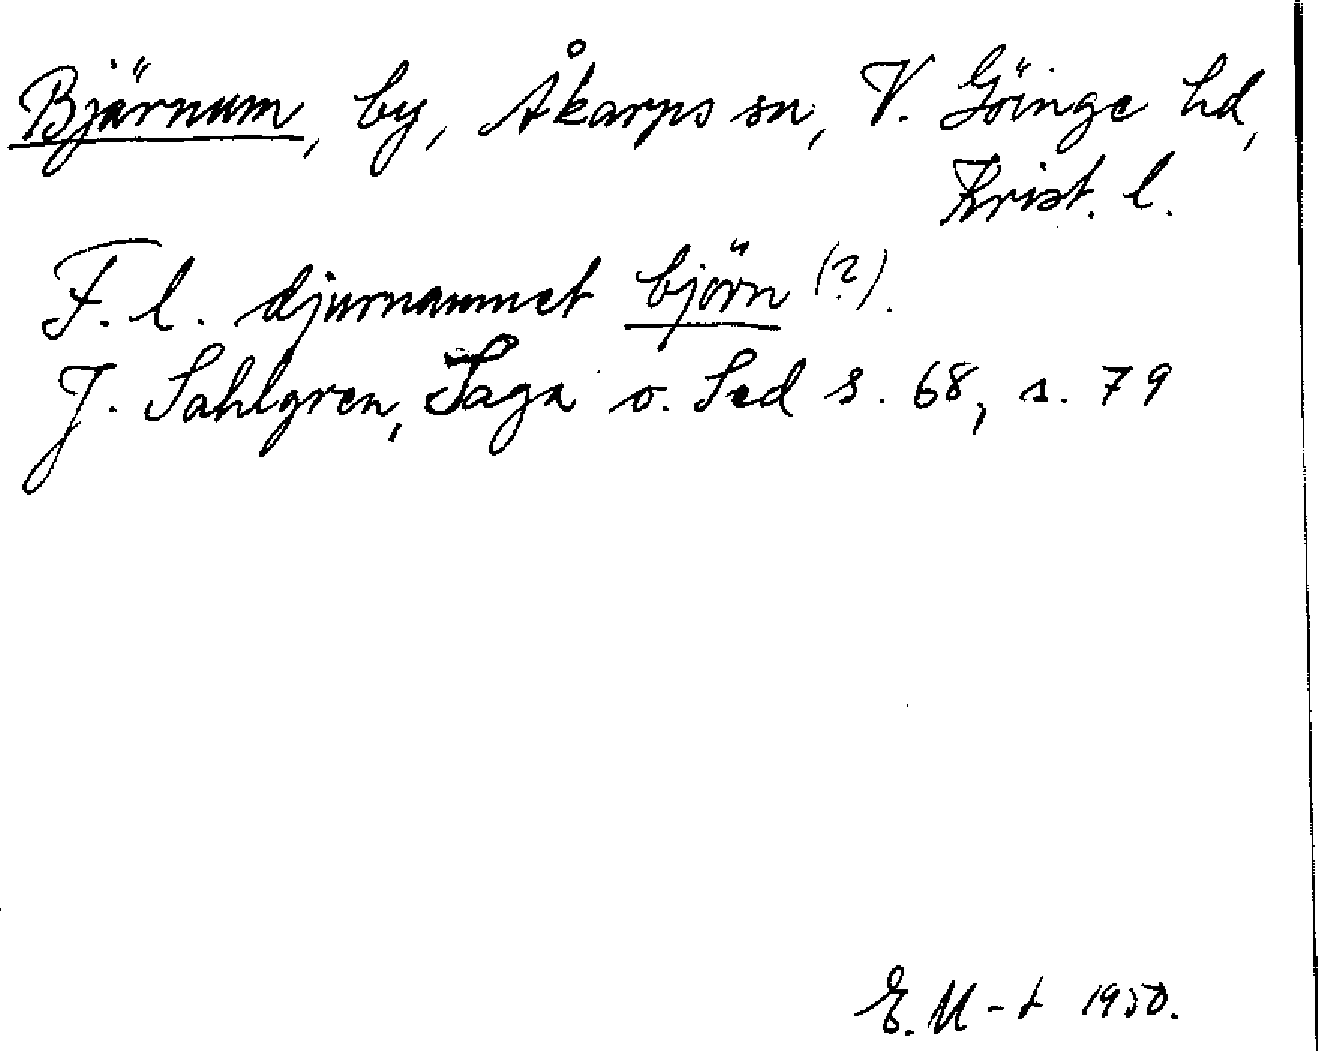 Bjärnum, by, Åkarps sn, V. Göinge hd,
Krist. l.
F. l. djurnamnet björn (?).
J. Sahlgren, Saga o. Sed s. 68, s. 79
E. M-t 1950.